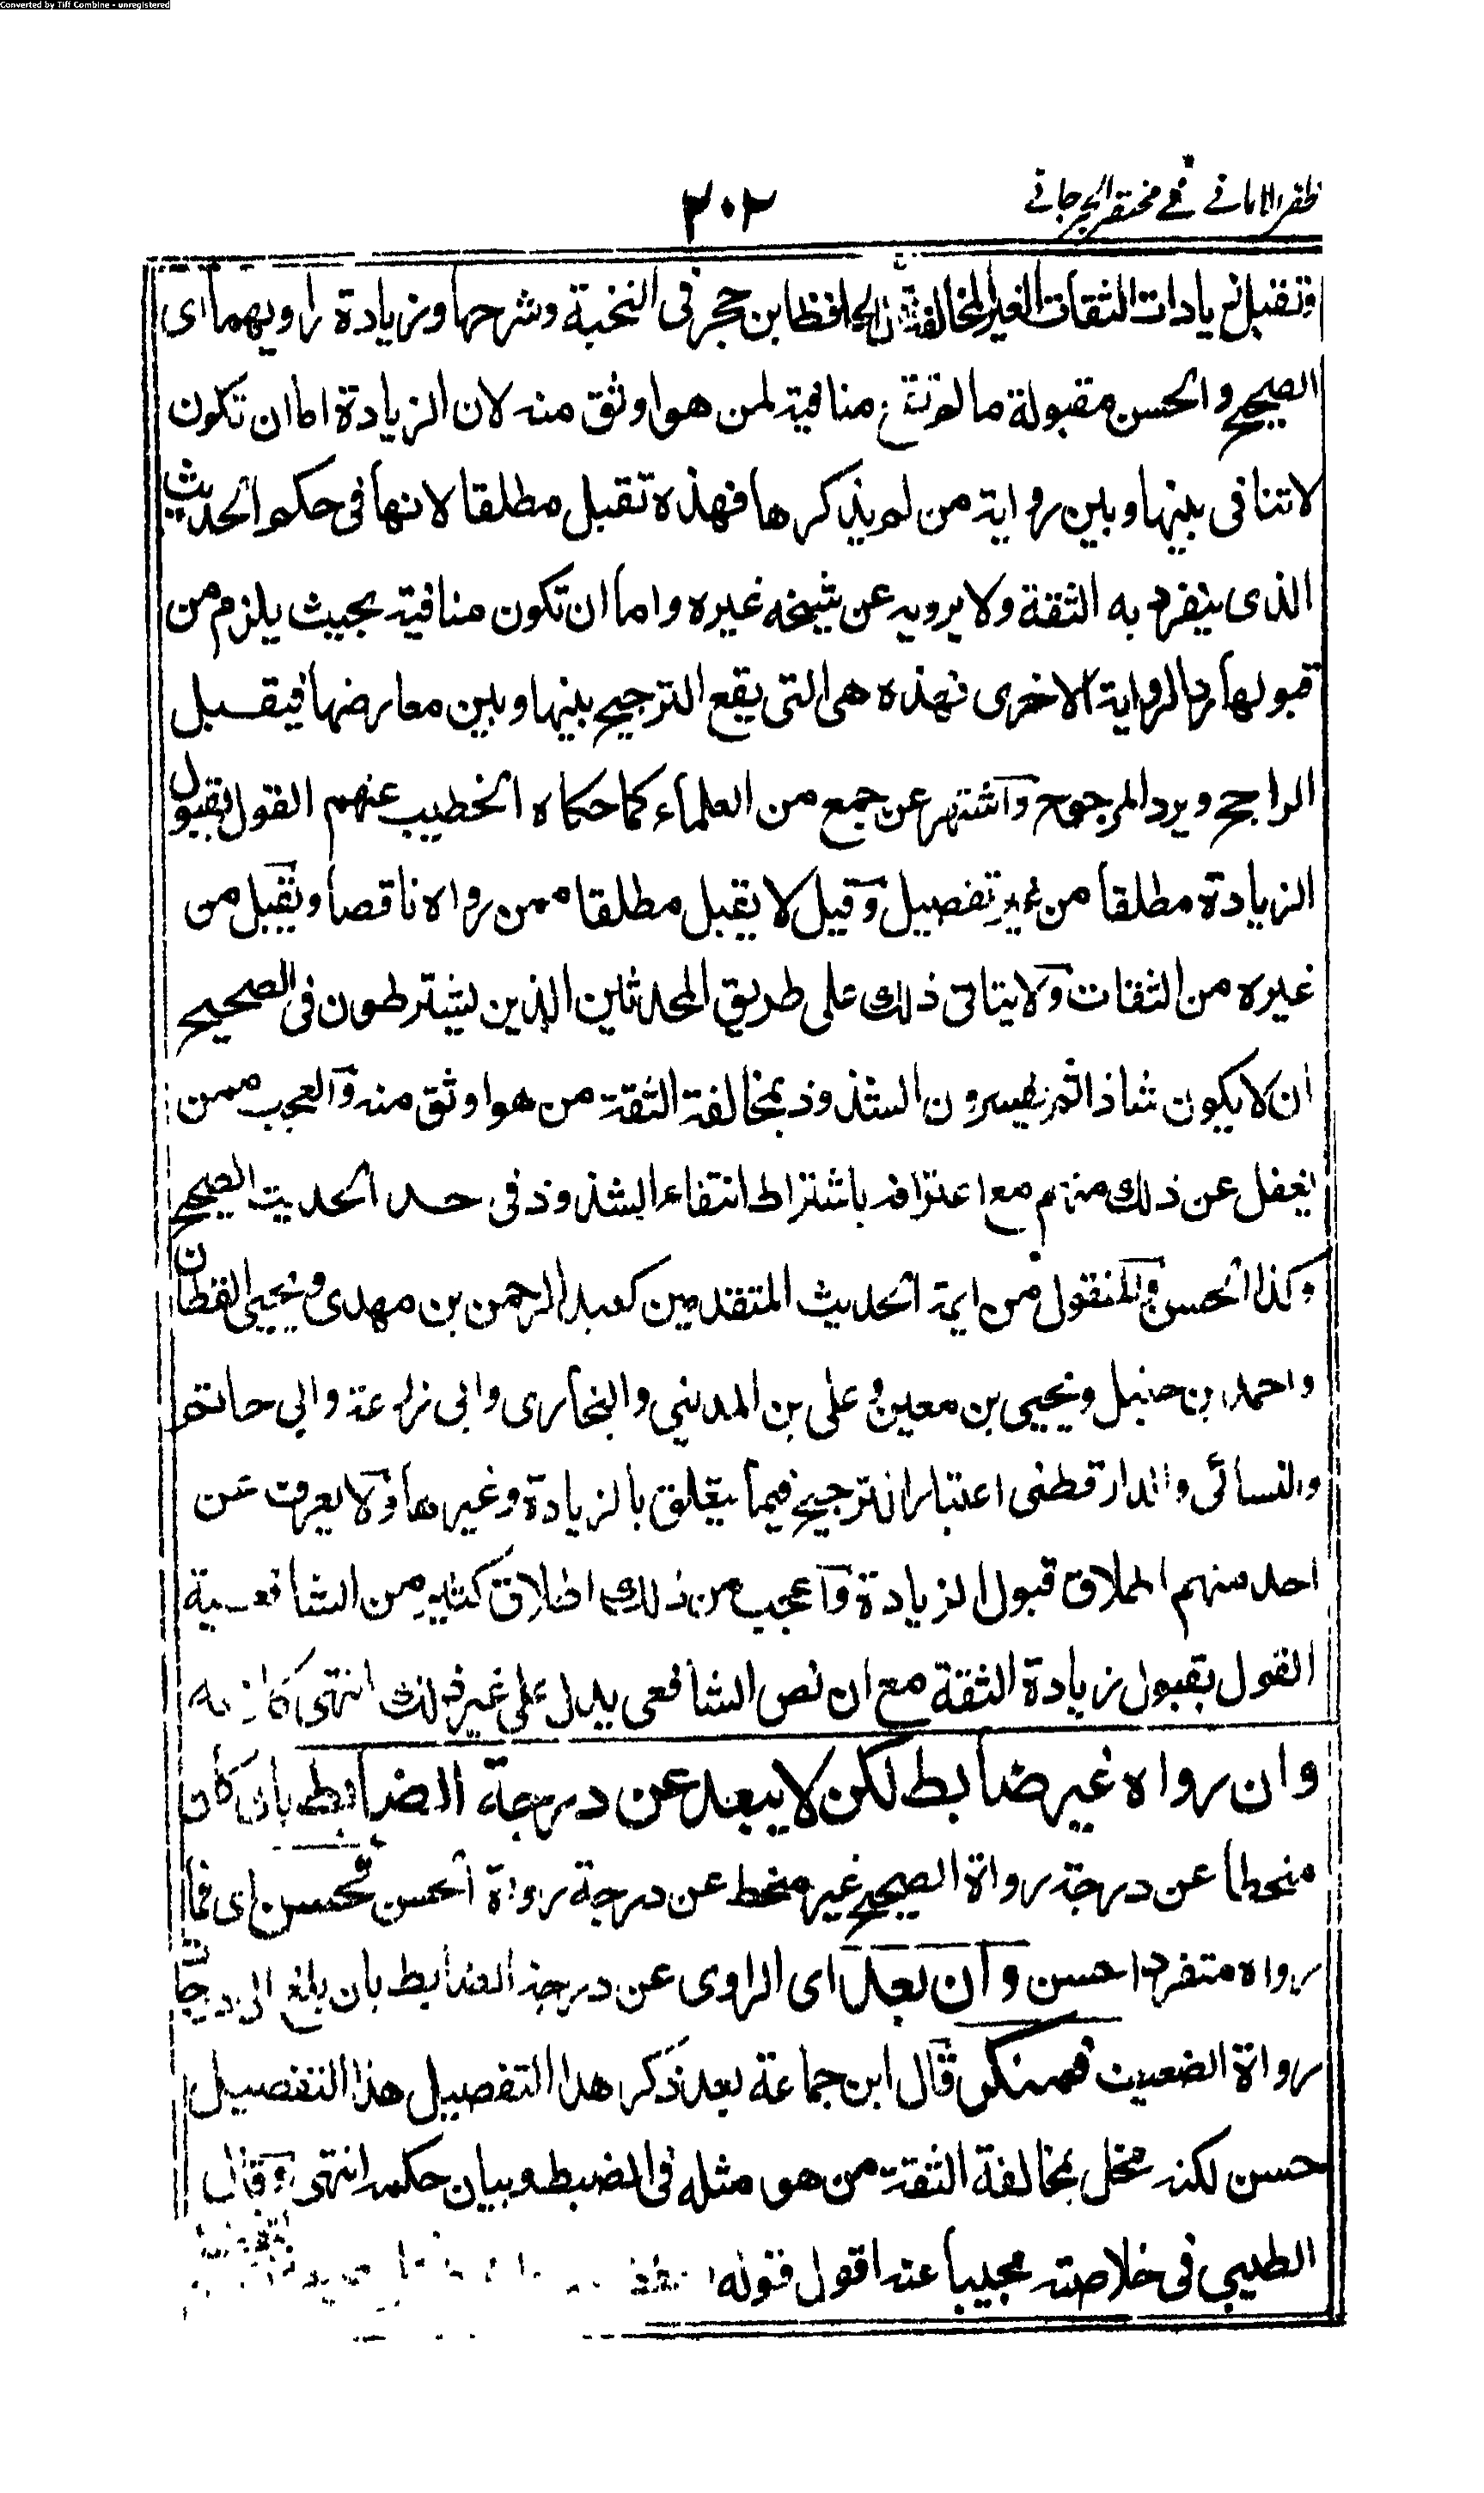 Converted by Tiff Combine - unregistered
ظفر الامانى فى مختصر الجرجانى
٢٠٢
وتقبل زيادات الثقات الغير المخالفة الحافظ ابن حجر فى النخبة وشرحها وزيادة راويهما اى
الصحيح والحسن مقبولة ما لم تقع منافية لمن هو اوثق منه لان الزيادة اما ان تكون
لا تنافى بينها وبين رواية من لم يذكرها فهذه تقبل مطلقا لانها فى حكم الحديث
الذى ينفرد به الثقة ولا يرويه عن شيخه غيره واما ان تكون منافية بحيث يلزم من
قبولها رد الرواية الاخرى فهذه هى التى يقع الترجيح بينها وبين معارضها فيقبل
الراجح ويرد المرجوح واشتهر عن جمع من العلماء كما حكاه الخطيب عنهم القول بقبول
الزيادة مطلقا من غير تفصيل وقيل لا يقبل مطلقا ممن رواه ناقصا ويقبل من
غيره من الثقات ولا يتاتى ذلك على طريق المحدثين الذين يشترطون فى الصحيح
ان لا يكون شاذا ثم يفسرون الشذوذ بمخالفة الثقة من هو اوثق منه والعجب ممن
يغفل عن ذلك منهم مع اعترافه باشتراط انتفاء الشذوذ فى حد الحديث الصحيح
وكذا الحسن والمنقول من ايمة الحديث المتقدمين كعبد الرحمن بن مهدى ويحيى القطان
واحمد بن حنبل ويحيى بن معين وعلى بن المدينى والبخارى وابى زرعة وابى حاتم
والنسائى والدارقطنى اعتبار الترجيح فيما يتعلق بالزيادة وغيرها ولا يعرف عن
احد منهم اطلاق قبول الزيادة واعجب من ذلك اطلاق كثير من الشافعية
القول بقبول زيادة الثقة مع ان نص الشافعى يدل على غير ذلك انتهى كلامه
وان رواه غير ضابط لكن لا يبعد عن درجة الضابط بان كان
منحطا عن درجة رواة الصحيح غير منحط عن درجة رواة الحسن فحسن اى فما
رواه متفردا حسن وان بعد اى الراوى عن درجة الضابط بان بلغ الى درجات
رواة الضعيف فمنكر قال ابن جماعة بعد ذكر هذا التفصيل هذا التفصيل
حسن لكنه مخل بمخالفة الثقة من هو مثله فى الضبط وبيان حكمه انتهى وقال
الطيبى فى خلاصته مجيبا عنه اقول قوله